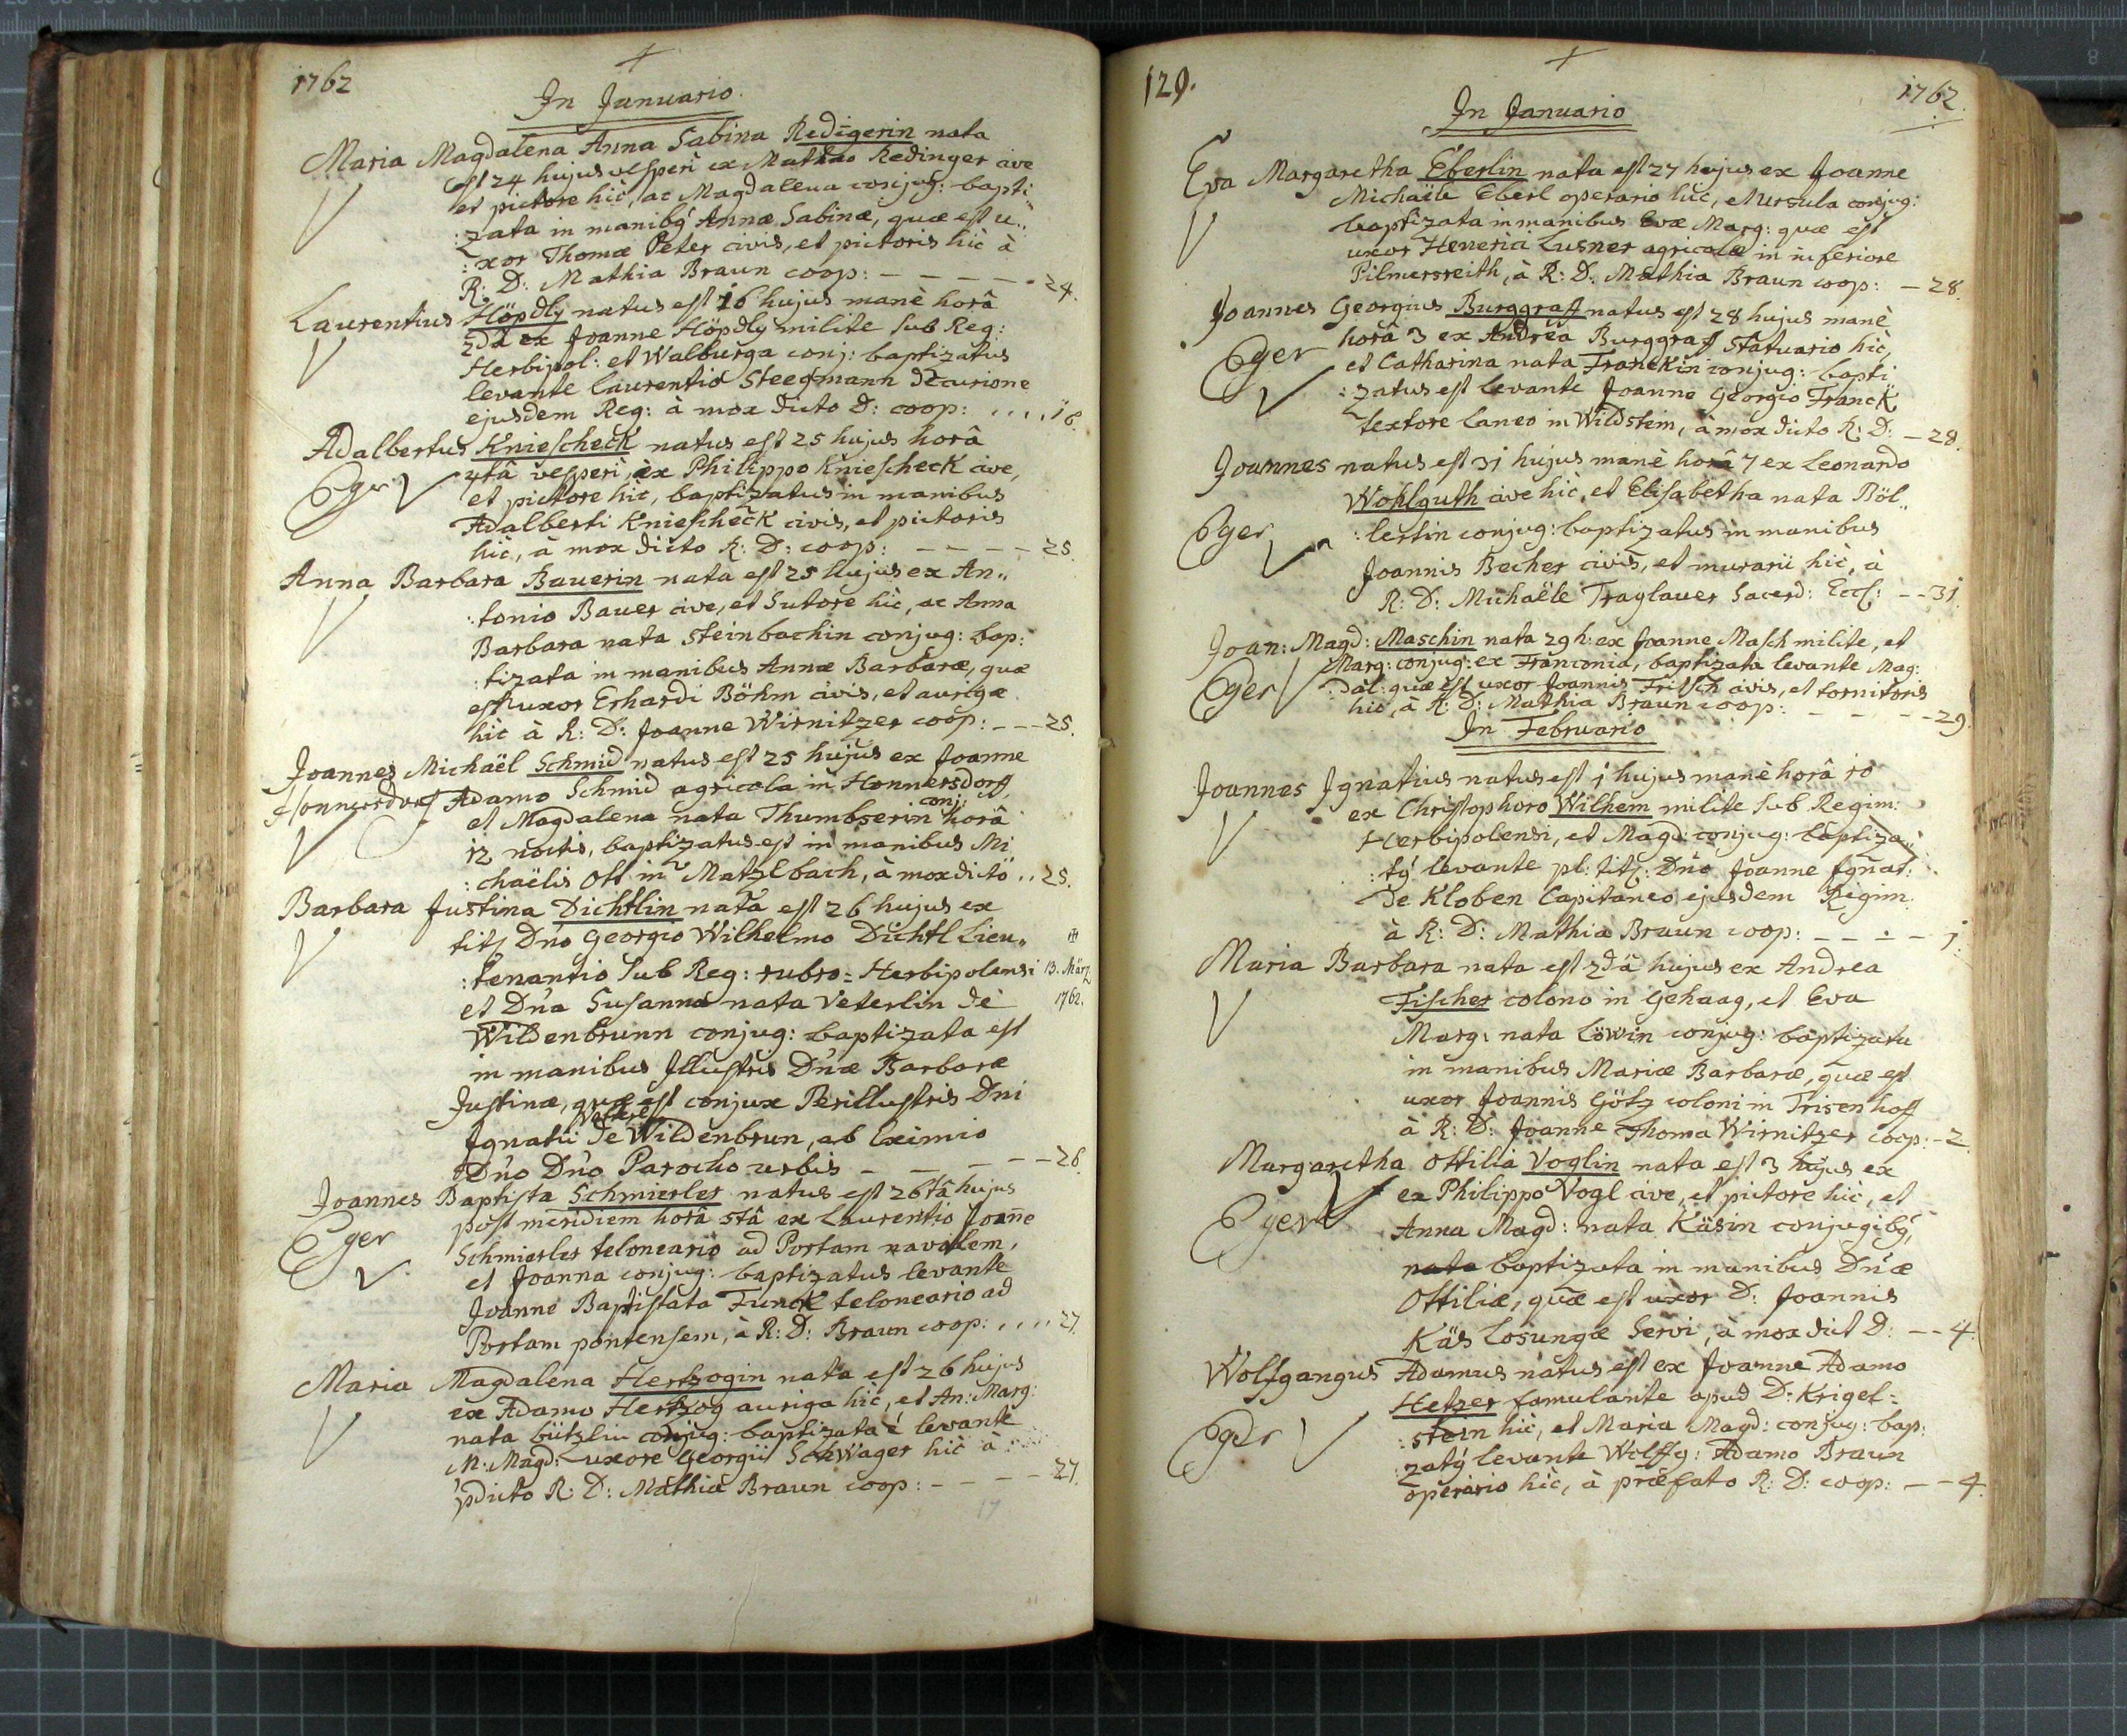 1762
In Januario.
Maria Magdalena Anna Sabina Redigerin nata
est 24 hujus vesperi ex Mathæo Redinger cive
et pictore hic, ac Magdalena conjug: bapti:
:zata in manibq Annæ Sabinæ, quæ est u..
:xor Thomæ Peter civis, et pictoris hic à
R: D: Mathia Braun coop: - - - - - 24.
Laurentius Höpdly natus est 16 hujus manè horâ
2dâ ex Joanne Höpdly milite sub Reg:
Herbipol: et Walburga conj: baptizatus
levante Laurentio Steegmann decurione
ejusdem Reg: à mox dicto D: coop: .... 16.
Adalbertus Kniescheck natus est 25 hujus horâ
4tâ vesperi, ex Philippo Kniescheck cive,
Eger
et pictore hic, baptizatus in manibus
Adalberti Kniescheck civis, et pictoris
hic, à mox dicto R: D: coop: - - - - 25.
Anna Barbara Bauerin nata est 25 hujus ex An..
:tonio Bauer cive, et Sutore hic, ac Anna
Barbara nata Steinbachin conjug: bap:
:tizata in manibus Annæ Barbaræ, quæ
est uxor Erhardi Böhm civis, et aurigæ
hic à R: D: Joanne Wirnitzer coop: - - - 25.
Joannes Michaël Schmid natus est 25 hujus ex Joanne
Honnersdorf Adamo Schmid agricola in Honnersdorff,
et Magdalena nata Thumbserin conj: horâ
12 noctis, baptizatus est in manibus Mi
:chaëlis Ott in Matzlbach, à mox dicto .. 25.
Barbara Justina Dichtlin nata est 26 hujus ex
titl Dno Georgio Wilhelmo Dichtl Lieu..
:tenantio sub Reg: rubro = Herbipolensi 13. März
et Dna Susanna nata Veterlin de 1762.
Wildenbrunn conjug: baptizata est
in manibus Illustris Dnæ Barbaræ
Justinæ, quæ est conjux Perillustris Dni
Ignatii de Wildenbrun, ab Eximio
Dno Dno Parocho urbis - - - - 26.
Joannes Baptista Schmierler natus est 26tâ hujus
Eger
post meridiem horâ 5tâ ex Laurentio Joanne
Schmierler teloneario ad Portam navalem,
et Joanna conjug: baptizatus levante
Joanne Baptistata Funck teloneario ad
Portam pontensem, à R: D: Braun coop: .... 27.
Maria Magdalena Hertzogin nata est 26 hujus
ex Adamo Hertzog auriga hic, et An: Marg:
nata Lützlin conjug: baptizata è levante
M: Magd: uxore Georgii Schwager hic à
pdicto R: D: Mathia Braun coop: - - - - 27.
17
129. 1762.
In Januario
Eva Margaretha Eberlin nata est 27 hujus ex Joanne
Michaële Eberl operario hic, et Ursula conjug:
baptizata in manibus Evæ Marg: quæ est
uxor Henerici Lusner agricolæ in inferiore
Pilmersreith, à R: D: Mathia Braun coop: - 28.
Joannes Georgius Burggraff natus est 28 hujus manè
horâ 3 ex Andrea Burggraff Statuario hic,
Eger
et Catharina nata Franckin conjug: bapti
:zatus est levante Joanne Georgio Franck
textore laneo in Wildstein, à mox dicto R: D: - 28
Joannes natus est 31 hujus manè horâ 7 ex Leonardo
Wohlguth cive hic, et Elisabetha nata Böl..
Eger
:lertin conjug: baptizatus in manibus
Joannis Becher civis, et murarii hic, à
R: D: Michaële Traglauer Sacerd: Eccl: - - 31.
Joan: Magd: Maschin nata 29 h: ex Joanne Masch milite, et
Marg: conjug: ex Franconia, baptizata levante Mag:
Eger
:dal: quæ est uxor Joannis Fritsch civis, et tornitoris
hic, à R: D: Mathia Braun coop: - - - - 29.
In Februario
Joannes Ignatius natus est 1 hujus manè horâ 10
ex Christophoro Wilhem milite sub Regim:
Herbipolensi, et Magd: conjug: baptiza..
:tq levante pl: titl: Dno Joanne Ignat:
de Kloben Capitaneo ejusdem Regim.
à R: D: Mathia Braun coop: - - - - 1.
Maria Barbara nata est 2dâ hujus ex Andrea
Fischer colono in Gehaag, et Eva
Marg: nata Löwin conjug: baptizata
in manibus Mariæ Barbaræ, quæ est
uxor Joannis Götz coloni in Trisenhoff
à R: D: Joanne Thoma Wirnitzer coop: - 2
Margaretha Ottilia Voglin nata est 3 hujus ex
ex Philippo Vogl cive, et pictore hic, et
Eger
Anna Magd: nata Käsin conjugibq,
nata baptizata in manibus Dnæ
Ottiliæ, quæ est uxor D: Joannis
Käs Losungæ Servi, à mox dict D: - - 4.
Wolfgangus Adamus natus est ex Joanne Adamo
Hetzer famulante apud D: Krigel=
Eger
:stein hic, et Maria Magd: conjug: bap:
:zatq levante Wolffg: Adamo Braun
operario hic, à præfato R: D: coop: - - 4.